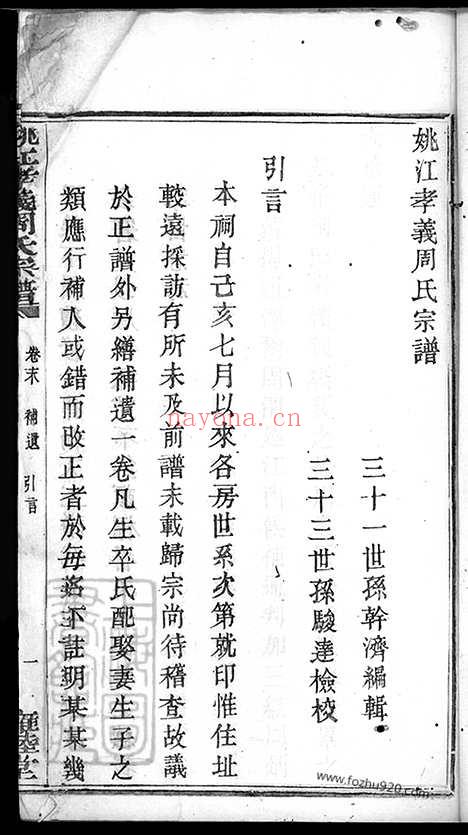 姚江孝義周氏宗譜
三十一世孫幹濟編輯
三十三世孫駿達檢校
引言
本祠自己亥七月以來各房世系次第就印惟住址
較遠採訪有所未及前譜未載歸宗尚待稽查故議
於正譜外另繕補遺一卷凡生卒氏配娶妻生子之
類應行補入或錯而改正者於每名下註明某某幾
姚江孝義周氏宗譜
卷末 補遺 引言
一
堂
nayona.cn
www.fozhu920.com